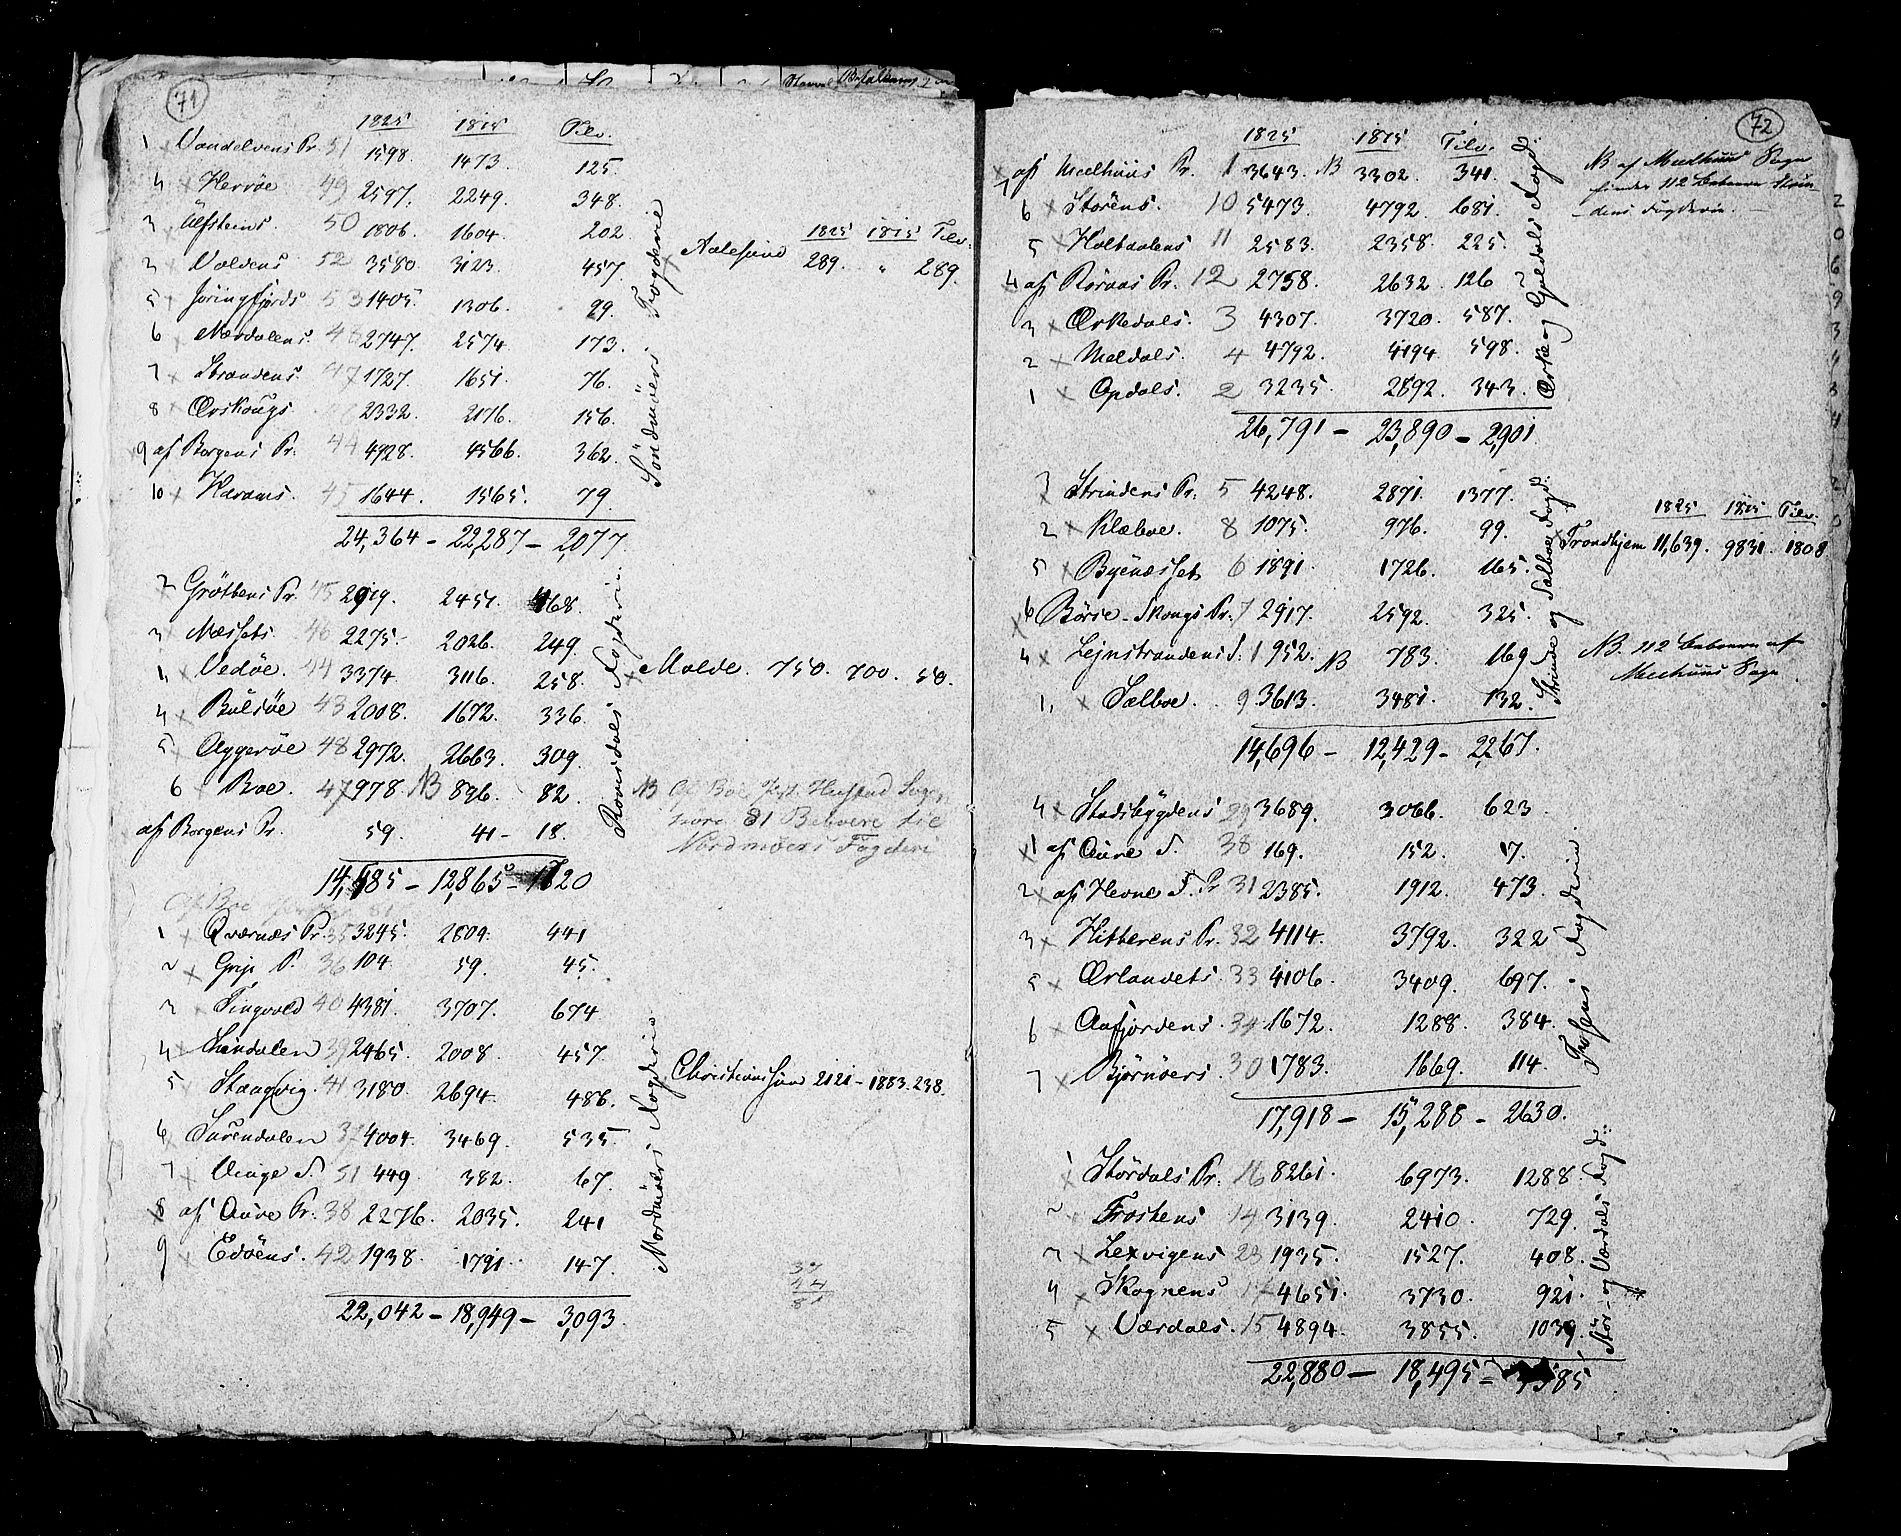 71
1825 1815 Tilv.
1 Vandelvens Pr. 51 1598. 1473. 125.
4 x Herröe 49 2597. 2249. 348.
3 Ulfsteins 50 1806. 1604. 202.
2 x Voldens 52 3580. 3123. 457.
5 Jöringfjords 53 1405. 1306. 99.
6 x Nordalens. 46 2747. 2574. 173.
7 x Strandens. 47 1727. 1651. 76.
8 x Örskougs 2332. 2176. 156.
9 af Borgens Pr. 44 4928. 4566. 362.
10 x Harams. 45 1644. 1565. 79.
24,364 – 22,287 – 2,077.
Söndmöers Fogderie
x Aalesund 1825 1815 Tilv.
289. " 289.
2 Gröttens Pr. 45 2919. 2451. 468.
3 Næssets. 46 2275. 2026. 249.
1 x Vedöe. 44 3374. 3116. 258.
4 x Bulsöe 43 2008. 1672. 336.
5 x Aggeröe 48 2972. 2663. 309.
6 x Boe. 47 978. NB 896. 82.
af Borgens Pr. 59. 41 – 18.
14,585 – 12,865 – 1720
Romsdals Fogderie
x Molde. 750. 700. 50.
NB Af Boe Pr. Hustad Sogn
hore 81 Beboere til
Nordmöers Fogderi
af Boe
1 x Qværnæs Pr. 35 3245. 2804. 441
2 x Grip S. 36 104 59. 45.
3 x Tingvold 40 4381. 3707. 674
4 Sundalen 39 2465. 2008. 457.
5 Stangvig. 41 3180. 2694. 486.
6 Surendalen 37 4004. 3469. 535.
7 x Vinge S. 51 449 382. 67.
8 af Aure Pr. 38 2276. 2035. 241
9 x Edöens. 42 1938. 1791. 147.
22,042 – 18,949 – 3,093.
Nordmöers Fogderie
Christiansund 2121 – 1883. 238.
37
44
81
72
1825 1815 Tilv.
x 7 af Meelhuus Pr. 1 3643. NB 3302. 341.
6 x Störens. 10 5473. 4792. 681.
5 x Holtaalens 11 2583. 2358. 225.
4 af Röraas Pr. 12 2758. 2632. 126
3 x Örkedals. 3 4307. 3720. 587.
2 x Meldals. 4 4792. 4194 598.
1 x Opdals. 2 3235. 2892. 343.
26,791 – 23,890 – 2,901.
Örke og Guldals Fogd:
NB af Meelhuus Sogn
findes 112 Beboere Strin-
dens Fogderie. –
7 Strindens Pr. 5 4248. 2871. 1377.
2 x Klæboe. 8 1075. 976. 99.
5 x Byenæsset 6 1891. 1726. 165.
6 x Börse-Skougs Pr. 7 2917. 2592. 325.
4 x Lejnstrandens S. 1 952. NB 783. 169
1 x Sælboe. 9 3613. 3481. 132.
14,696 – 12,429 – 2,267.
Strinde og Sælboe Fogd:
1825 1815 Tilv.
x Trondhjem 11,639. 9831. 1808
NB. 112 Beboere af
Meelhuus Sogn
4 x Stadsbygdens 29 3689. 3066. 623
x 1 af Aure S. 38 169. 152. 17.
2 x af Hevne S. Pr 31 2385. 1912. 473.
3 x Hitterens Pr. 32 4114. 3792. 322
5 x Örlandets 33 4106. 3409. 697.
6 x Aafjordens. 34 1672. 1288. 384.
7 x Björnöers. 30 1783. 1669. 114.
17,918 – 15,288 – 2630.
Fosens Fogderie
1 x Stördals Pr. 16 8261. 6973. 1288.
2 Frostens 14 3139. 2410. 729.
3 x Lexvigens 23 1935. 1527. 408.
4 x Skognens 17 4651. 3730. 921.
5 x Værdals. 15 4894. 3855. 1039.
22,880 – 18,495 –
Stör- og Værdals Fogd: